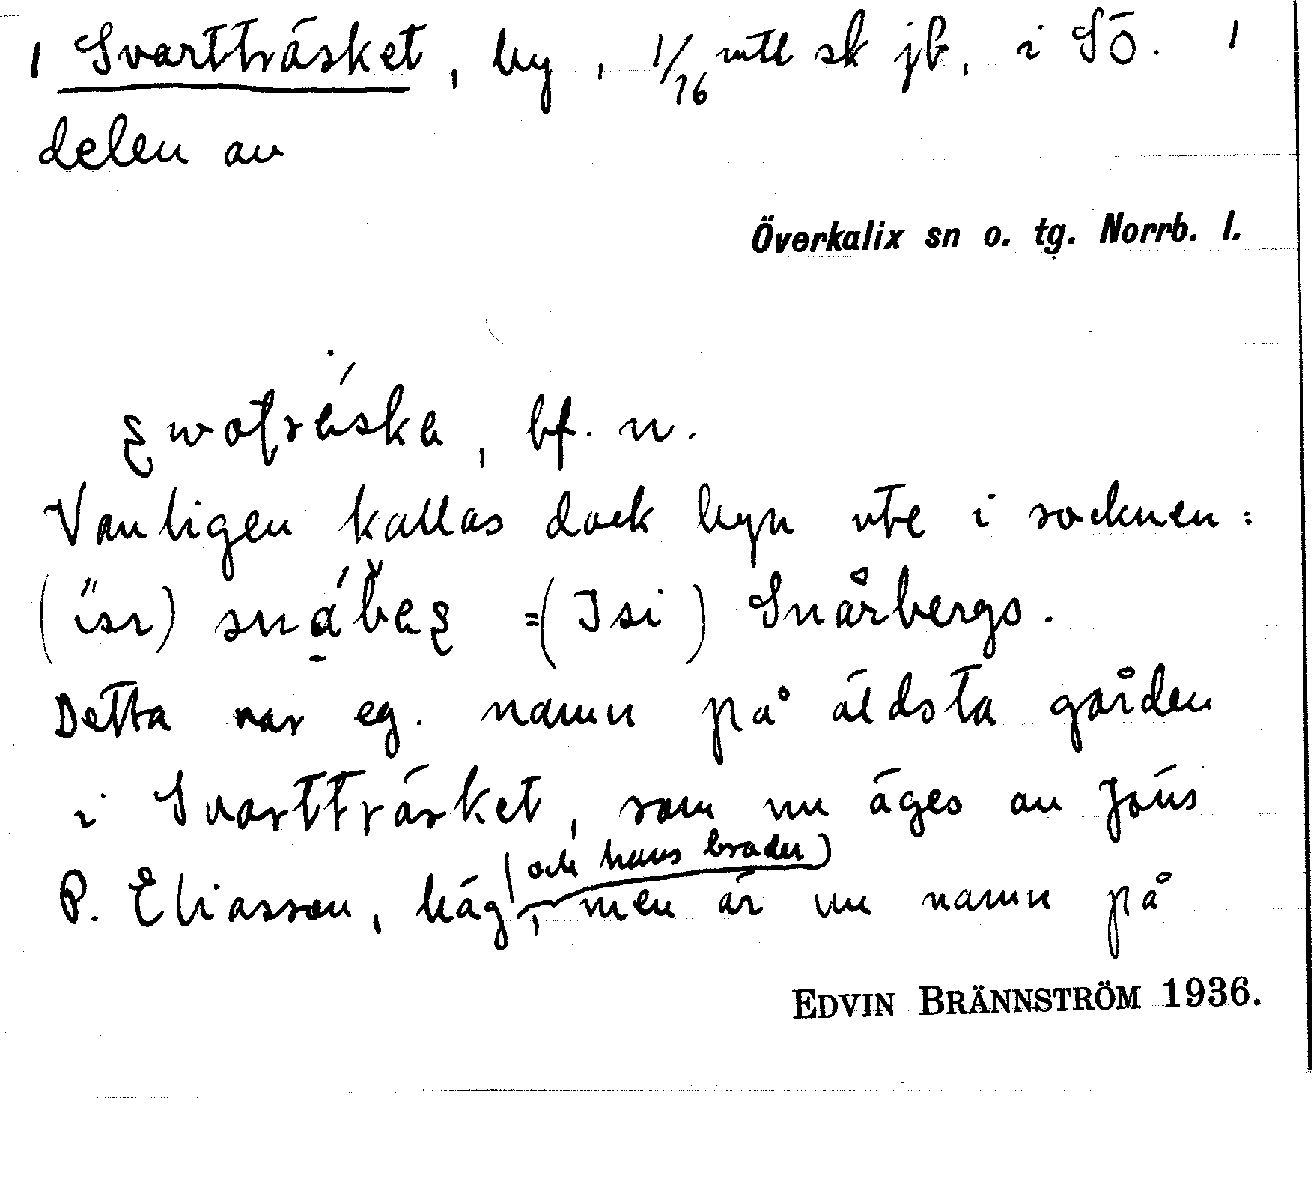 1 Svartträsket, by, 1/16 mtl sk jb, i SÖ. 1
delen av
Överkalix sn o. tg. Norrb. l.
bf. n.
Vanligen kallas dock byn ute i socknen:
= (Isi) Snårbergs.
Detta var eg. namn på äldsta gården
i Svartträsket, som nu äges av Jöns
(och hans broder)
P. Eliasson, häg, men är nu namn på
EDVIN BRÄNNSTRÖM 1936.